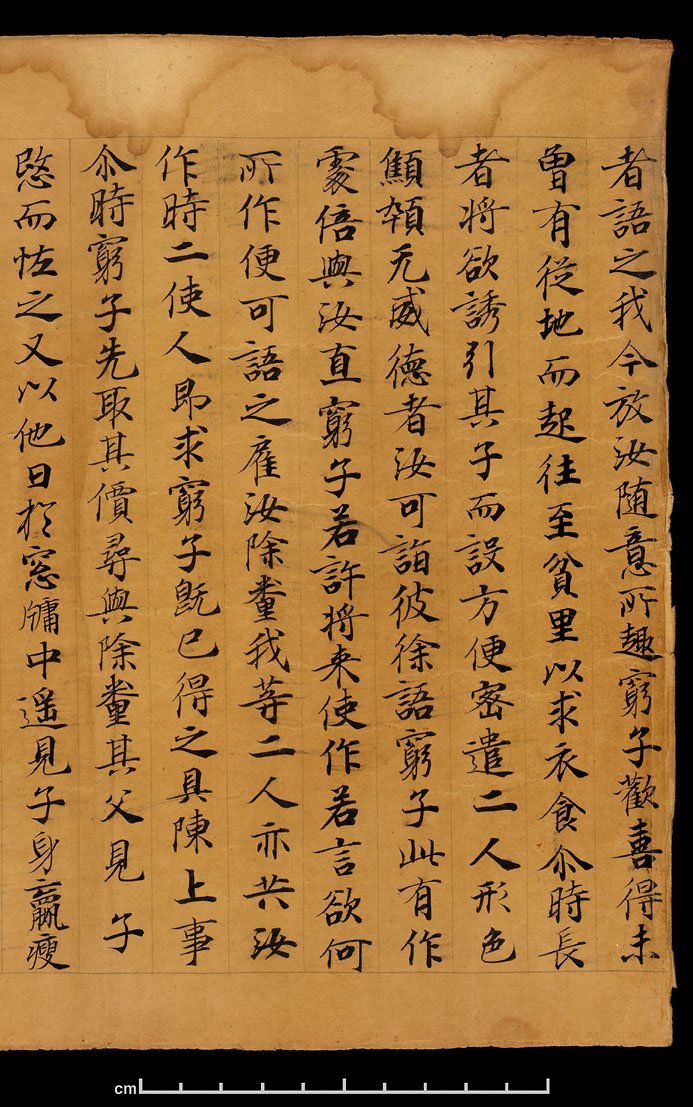 者語之我今放汝随意所趣窮子歡喜得未
曽有從地而起往至貧里以求衣食尒時長
者将欲誘引其子而設方便密遣二人形色
顦顇无威德者汝可詣彼徐語窮子此有作
處倍與汝直窮子若許将来使作若言欲何
所作便可語之雇汝除糞我等二人亦共汝
作時二使人即求窮子既已得之具陳上事
尒時窮子先取其價尋與除糞其父見子
愍而恠之又以他日於窓牖中遥見子身羸瘦
cm